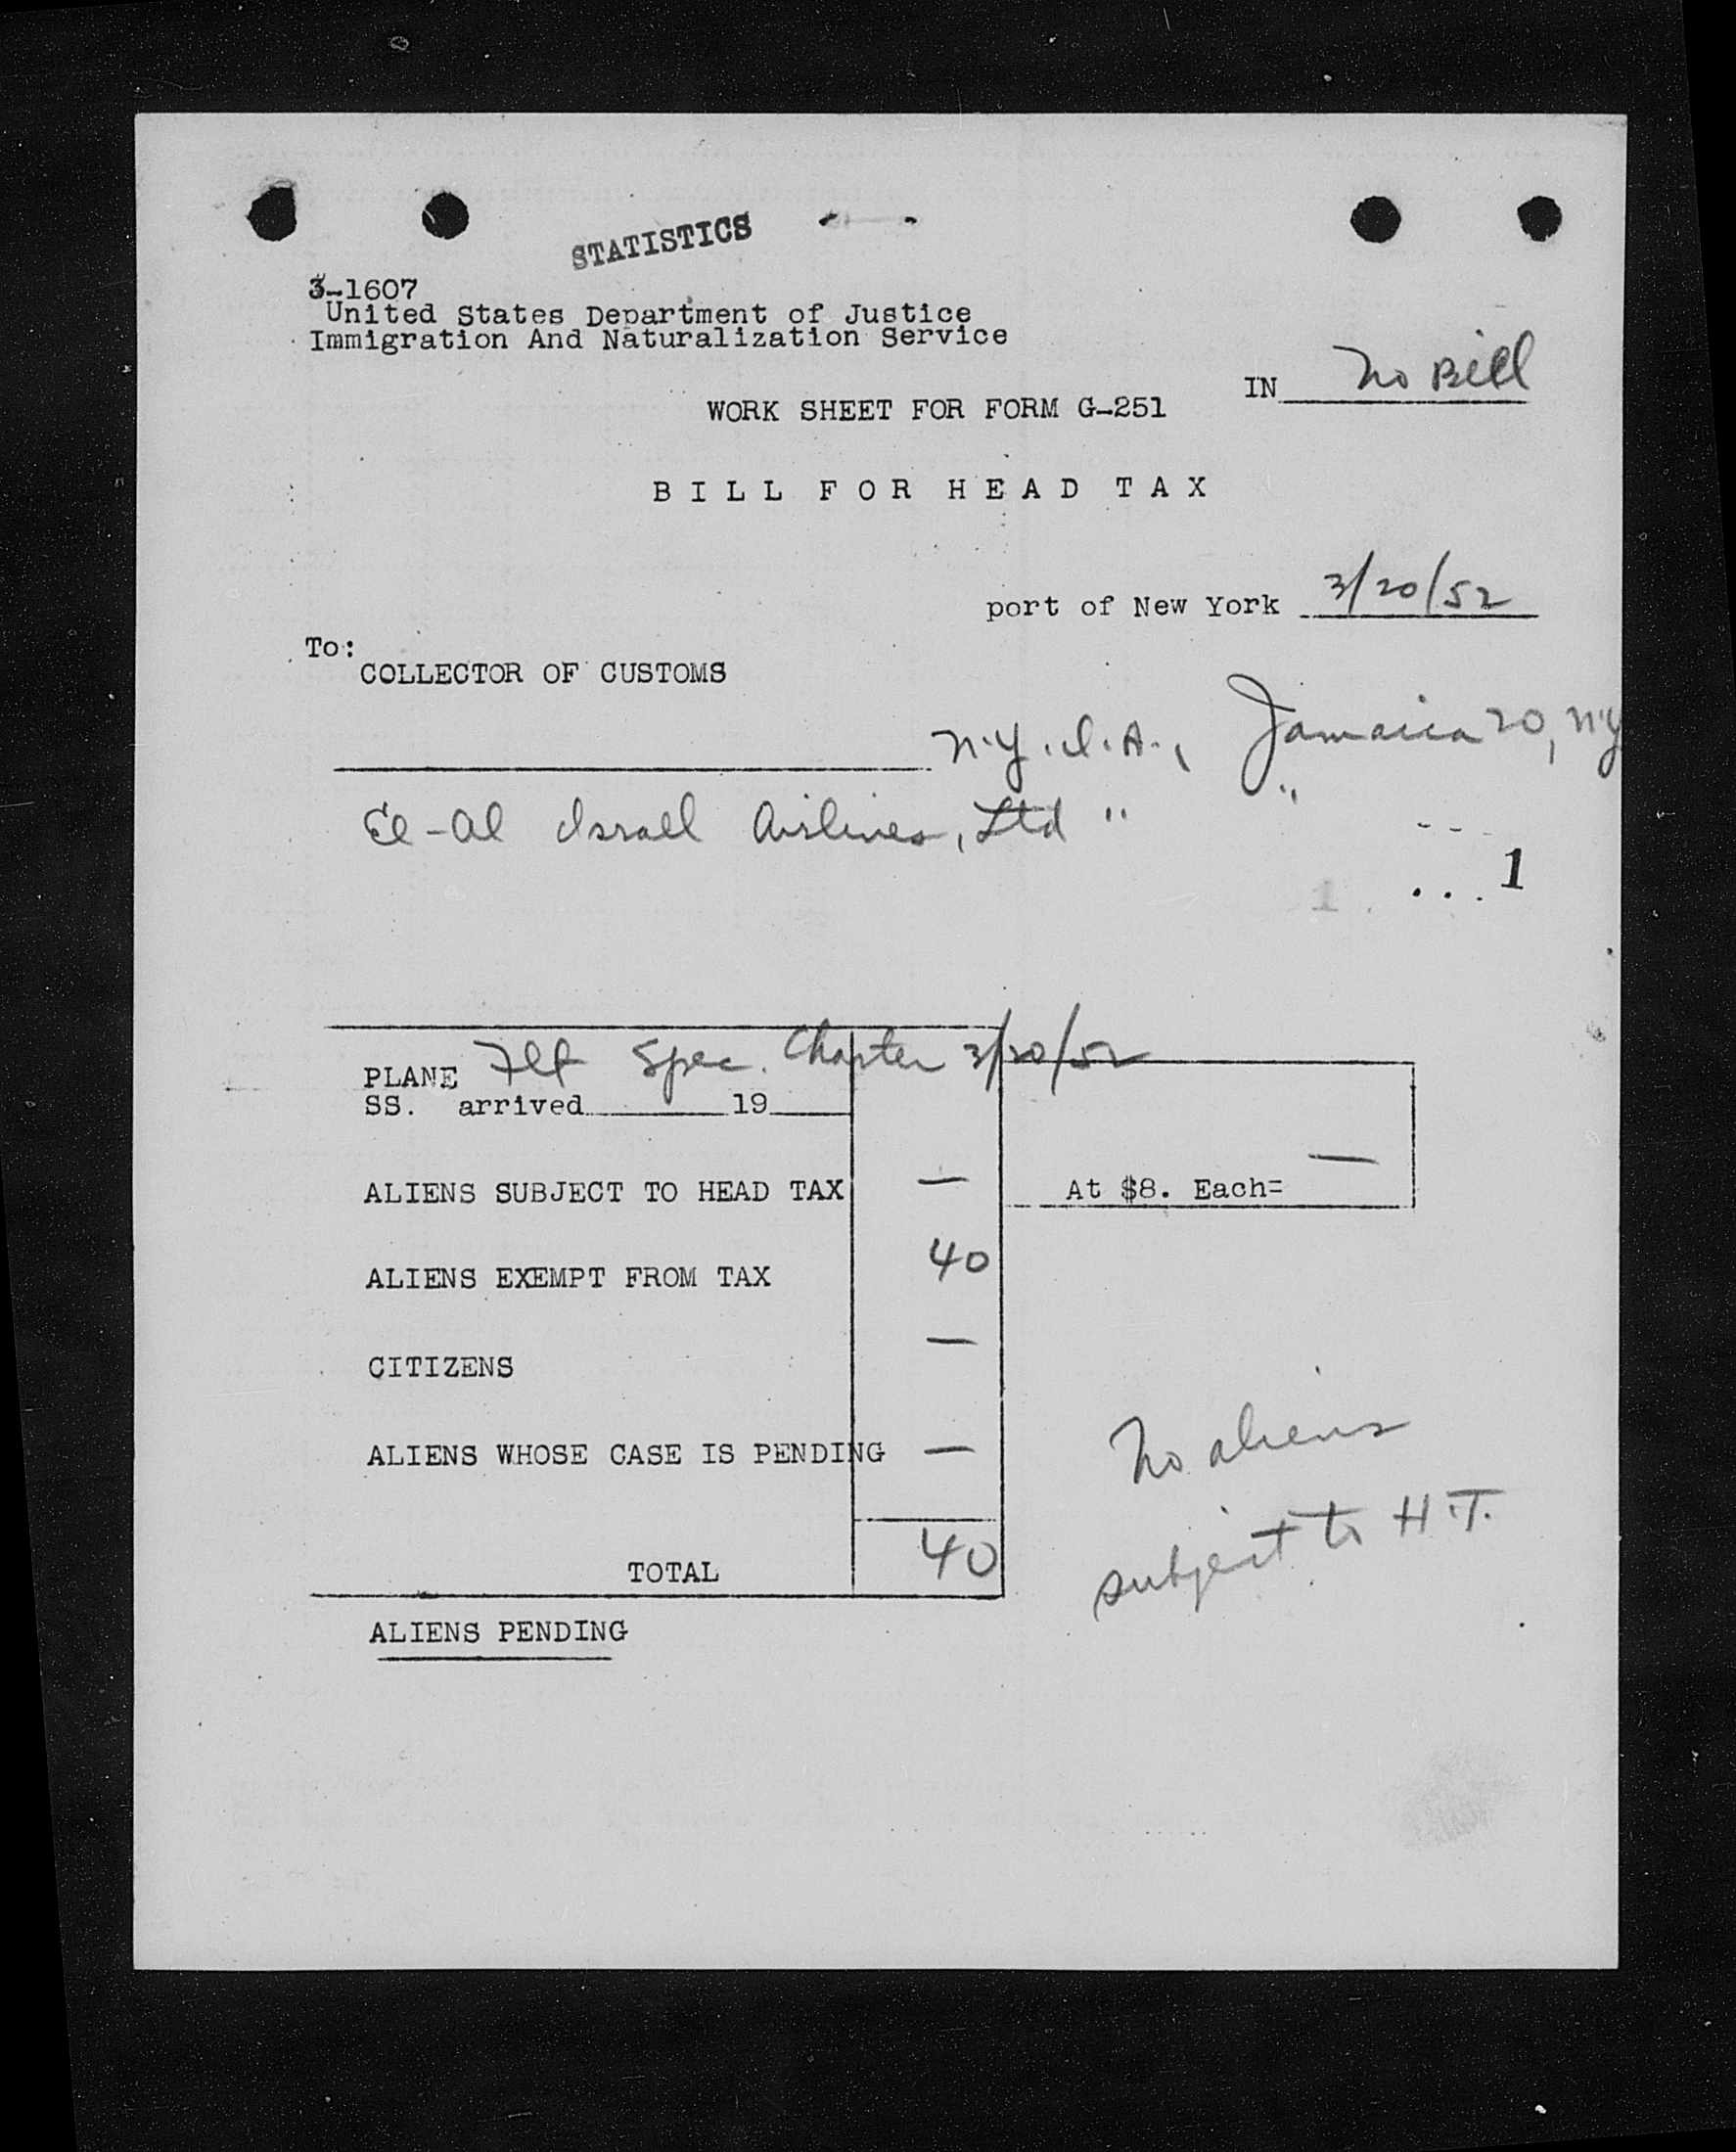 STATISTICS
3-1607
United States Department of Justice
Immigration And Naturalization Service
IN No Bill
WORK SHEET FOR FORM G-251
BILL FOR HEAD TAX
port of New York 3/20/52
To:
COLLECTOR OF CUSTOMS
N.Y.I.A., Jamaica 20, NY
El-Al Israel Airlines, Ltd " "
1 . ... 1
PLANE Flt Spec. Charter 3/20/52
SS. arrived 19
ALIENS SUBJECT TO HEAD TAX — At $8. Each= —
ALIENS EXEMPT FROM TAX 40
CITIZENS —
ALIENS WHOSE CASE IS PENDING —
No aliens
subject to H.T.
TOTAL 40
ALIENS PENDING